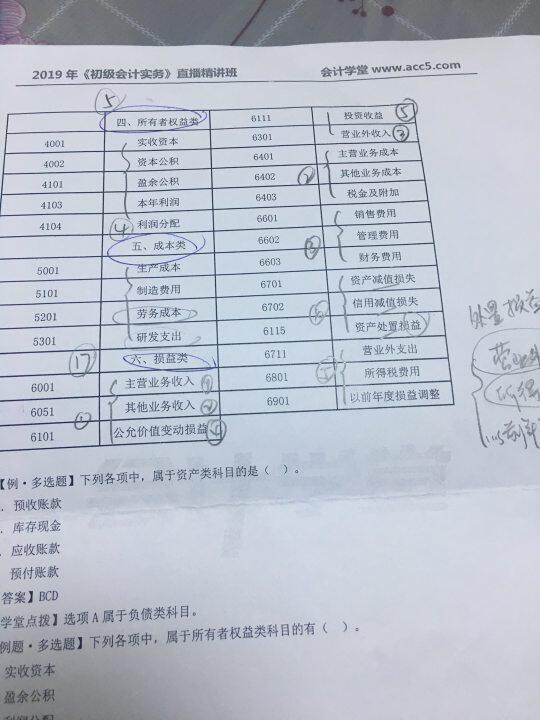 2019 年《初级会计实务》直播精讲班 会计学堂 www.acc5.com
⑤
四、所有者权益类 6111 投资收益 ⑤
4001 实收资本 6301 营业外收入 ③
4002 资本公积 6401 主营业务成本
4101 盈余公积 6402 其他业务成本
4103 本年利润 6403 税金及附加
4104 ④ 利润分配 6601 销售费用
五、成本类 6602 管理费用
5001 生产成本 6603 ③ 财务费用
5101 制造费用 6701 资产减值损失
5201 劳务成本 6702 信用减值损失
5301 研发支出 6115 资产处置损益
⑰ 六、损益类 6711 营业外支出
6001 主营业务收入 ① 6801 所得税费用
6051 其他业务收入 ② 6901 以前年度损益调整
6101 公允价值变动损益 ④
处置损益
【例·多选题】下列各项中，属于资产类科目的是（ ）。
. 预收账款
. 库存现金
. 应收账款
预付账款
答案】BCD
学堂点拨】选项 A 属于负债类科目。
例题·多选题】下列各项中，属于所有者权益类科目的有（ ）。
实收资本
盈余公积
利润分配